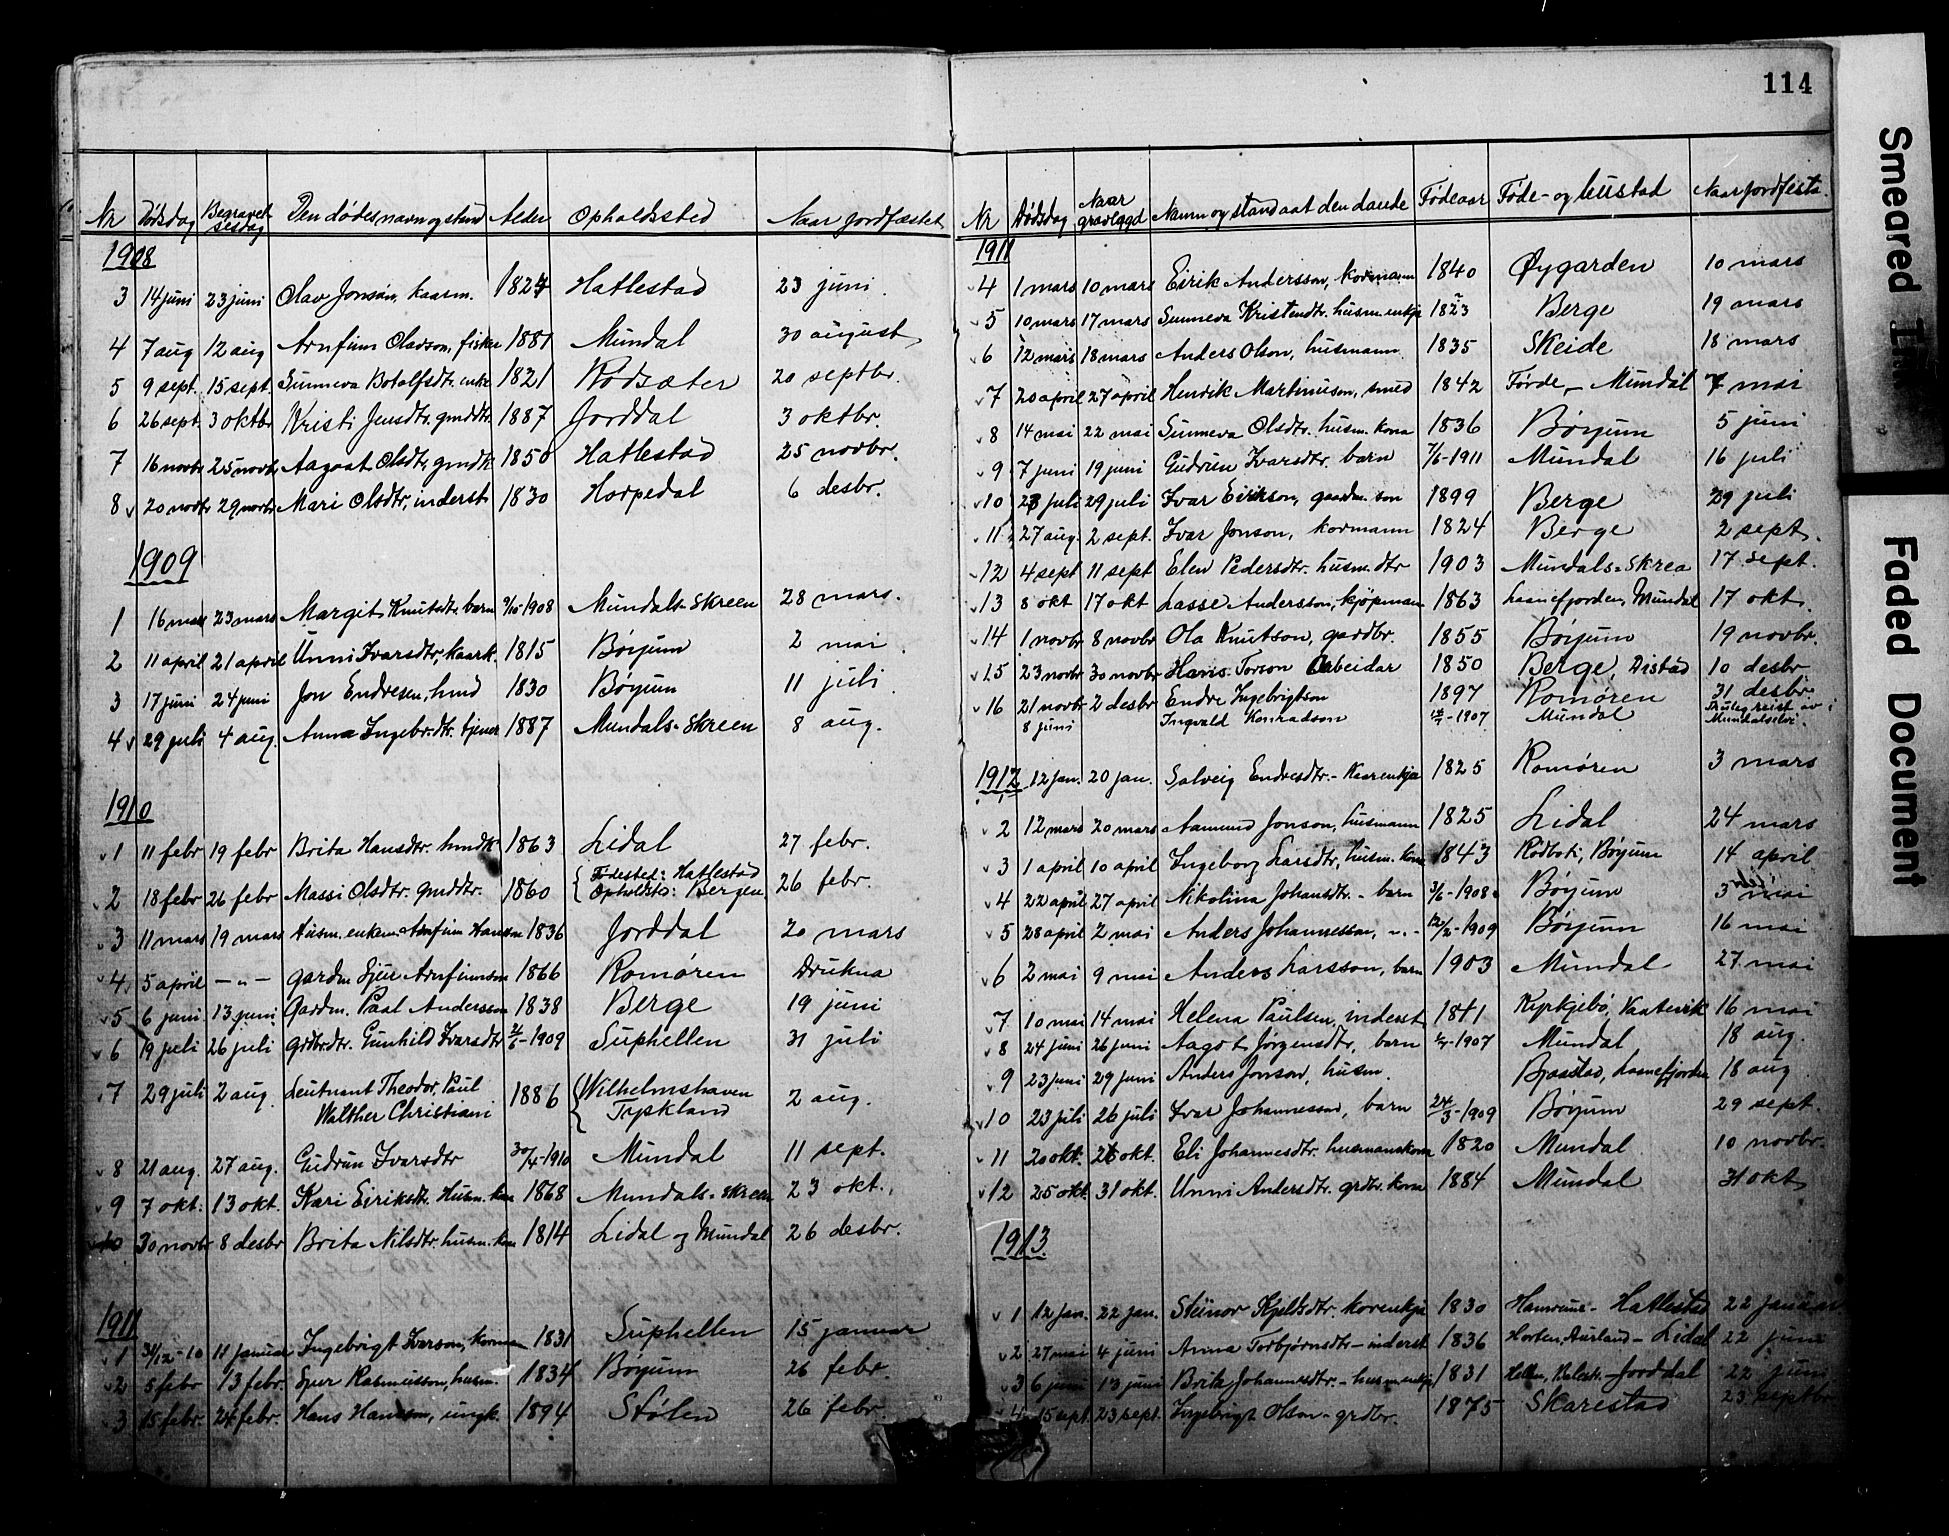 114
Nr Dødsdag Begravelsesdag Den dødes navn og stand Alder Opholdssted Naar jordfæstet
1908
3 14 juni 23 juni Olav Jonson, kaarm. 1824 Hatlestad 23 juni
4 7 aug 12 aug Arnfinn Oladson, fisker 1881 Mundal 30 august
5 9 sept. 15 sept. Sunneva Botolfsdtr. enke 1821 Rødsæter 20 septbr.
6 26 sept. 3 oktbr Kristi Jensdtr. gmddtr. 1887 Jorddal 3 oktbr.
7 16 novbr 25 novbr Aagaat Olsdtr. gmdk 1850 Hatlestad 25 novbr.
8 20 novbr 29 novbr Mari Olsdtr, inderst 1830 Horpedal 6 desbr.
1909
1 16 mars 23 mars Margit Knutsdtr. barn 9/10-1908 Mundals-Skreen 28 mars.
2 11 april 21 april Unni Ivarsdtr, kaark. 1815 Bøyum 2 mai
3 17 juni 24 juni Jon Endresen, hmd 1830 Bøyum 11 juli
4 29 juli 4 aug. Anna Ingebr.dtr. tjener 1887 Mundals-Skreen 8 aug.
1910
1 11 febr 19 febr Brita Hansdtr. hmdk 1863 Lidal 27 febr.
2 18 febr 26 febr Massi Olsdtr. gmddtr. 1860 Fødested: Hatlestad Opholdstd: Bergen. 26 febr.
3 11 mars 19 mars Husm. enkem. Arnfinn Hansson 1836 Jorddal 20 mars
4 5 april -"- Gardm Sjur Arnfinnson 1866 Romøren Drukna
5 6 juni 13 juni Gardm. Paal Andersson 1838 Berge 19 juni
6 19 juli 26 juli Grdbr.dtr. Gunhild Ivarsdtr 2/6-1909 Suphellen 31 juli
7 29 juli 2 aug. Leutnant Theodor Paul Walther Christiani 1886 Wilhelmshaven Tyskland 2 aug.
8 21 aug. 27 aug. Gudrun Ivarsdtr 30/4-1910 Mundal 11 sept.
9 7 okt. 13 okt. Kari Eiriksdtr. Husm. kone 1868 Mundals-Skreen 23 okt.
10 30 novbr 8 desbr Brita Nilsdtr. husm. kone 1814 Lidal og Mundal 26 desbr.
1911
1 31/12-10 11 januar Ingebrigt Ivarson, korman 1831 Suphellen 15 januar
2 5 febr 13 febr. Sjur Rasmusson, husm. 1834 Bøyum 26 febr.
3 15 febr. 24 febr. Hans Hansson, ungk. 1894 Stølen 26 febr.
Nr Dødsdag Naar gravlagd Namn og stand aat den daude Fødeaar Føde- og bustad Naar jordfesta
1911
4 1 mars 10 mars Eirik Andersson, kormann 1840 Øygarden 10 mars
5 10 mars 17 mars Sunneva Kristendtr. husm. enkja 1823 Berge 19 mars
6 12 mars 18 mars Anders Olson, husmann 1835 Skeide 18 mars
7 20 april 27 april Henrik Martinuson, smed 1842 Førde - Mundal 7 mai
8 14 mai 22 mai Sunneva Olsdtr. husm. kona 1836 Bøyum 5 juni
9 7 juni 19 juni Gudrun Ivarsdtr. barn 7/6-1911 Mundal 16 juli
10 23 juli 29 juli Ivar Eirikson, gardm. son 1899 Berge 29 juli
11 27 aug. 2 sept. Ivar Jonson, kormann 1824 Berge 2 sept.
12 4 sept 11 sept Elen Pedersdtr. husm. dtr 1903 Mundals-Skrea 17 sept.
13 8 okt 17 okt Lasse Andersson, kjøpmann 1863 Lannefjorden, Mundal 17 okt.
14 1 novbr 8 novbr Ola Knutson, gardbr. 1855 Bøyum 19 novbr.
15 23 novbr 30 novbr Hans Torson Arbeidar 1850 Berge, Distad 10 desbr
16 21 novbr 2 desbr Endre Ingebrigtson 1897 Romøren 31 desbr.
8 juni Ingvald Konradson -1907 Mundal i Mundalselvi.
1912 12 jan. 20 jan. Salveig Endresdtr.- Kaarenkja 1825 Romøren 3 mars
2 12 mars 20 mars Aamund Jonson, husmann 1825 Lidal 24 mars
3 1 april 10 april Ingeborg Larsdtr, husm. kona 1843 Rødbøti, Bøyum 14 april
4 22 april 27 april Nikolina Johansdtr. - barn 3/6-1908 Bøyum 3 mai
5 28 april 2 mai Anders Johannesson, -"- -1909 Bøyum 16 mai
6 2 mai 9 mai Anders Larsson, barn 1903 Mundal 27 mai
7 10 mai 14 mai Helena Paulsen, inderst 1841 Kyrkjebø, Vaatevik 16 mai
8 24 juni 26 juni Aagot Jørgensdtr, barn -1907 Mundal 18 aug.
9 23 juni 29 juni Anders Jonson, husm. Bjaastad, Lannefjorden 18 aug
10 23 juli 26 juli Ivar Johannesson, barn 24/3-1909 Bøyum 29 sept.
11 20 okt. 26 okt. Eli Johannesdtr. husmannskona 1820 Mundal 10 novbr.
12 25 okt. 31 okt. Unni Andersdtr. grdbr. kona 1884 Mundal 31 okt
1913
1 12 jan. 22 jan. Steinor Kjeldsdtr. korenkja 1830 Hamrum - Hatlestad 22 januar
2 27 mai 4 juni Anna Torbjørnsdtr - inderst 1836 Horten, Aurland - Lidal 22 juni
3 6 juni 13 juni Brita Johannesdtr. - husm. enkja 1831 Hellen, Balestr. - Jorddal 22 juni
4 15 sept. 23 sept. Ingebrigt Olson - grdbr. 1875 Skarestad 23 septbr
Smeared Ink
Faded Document